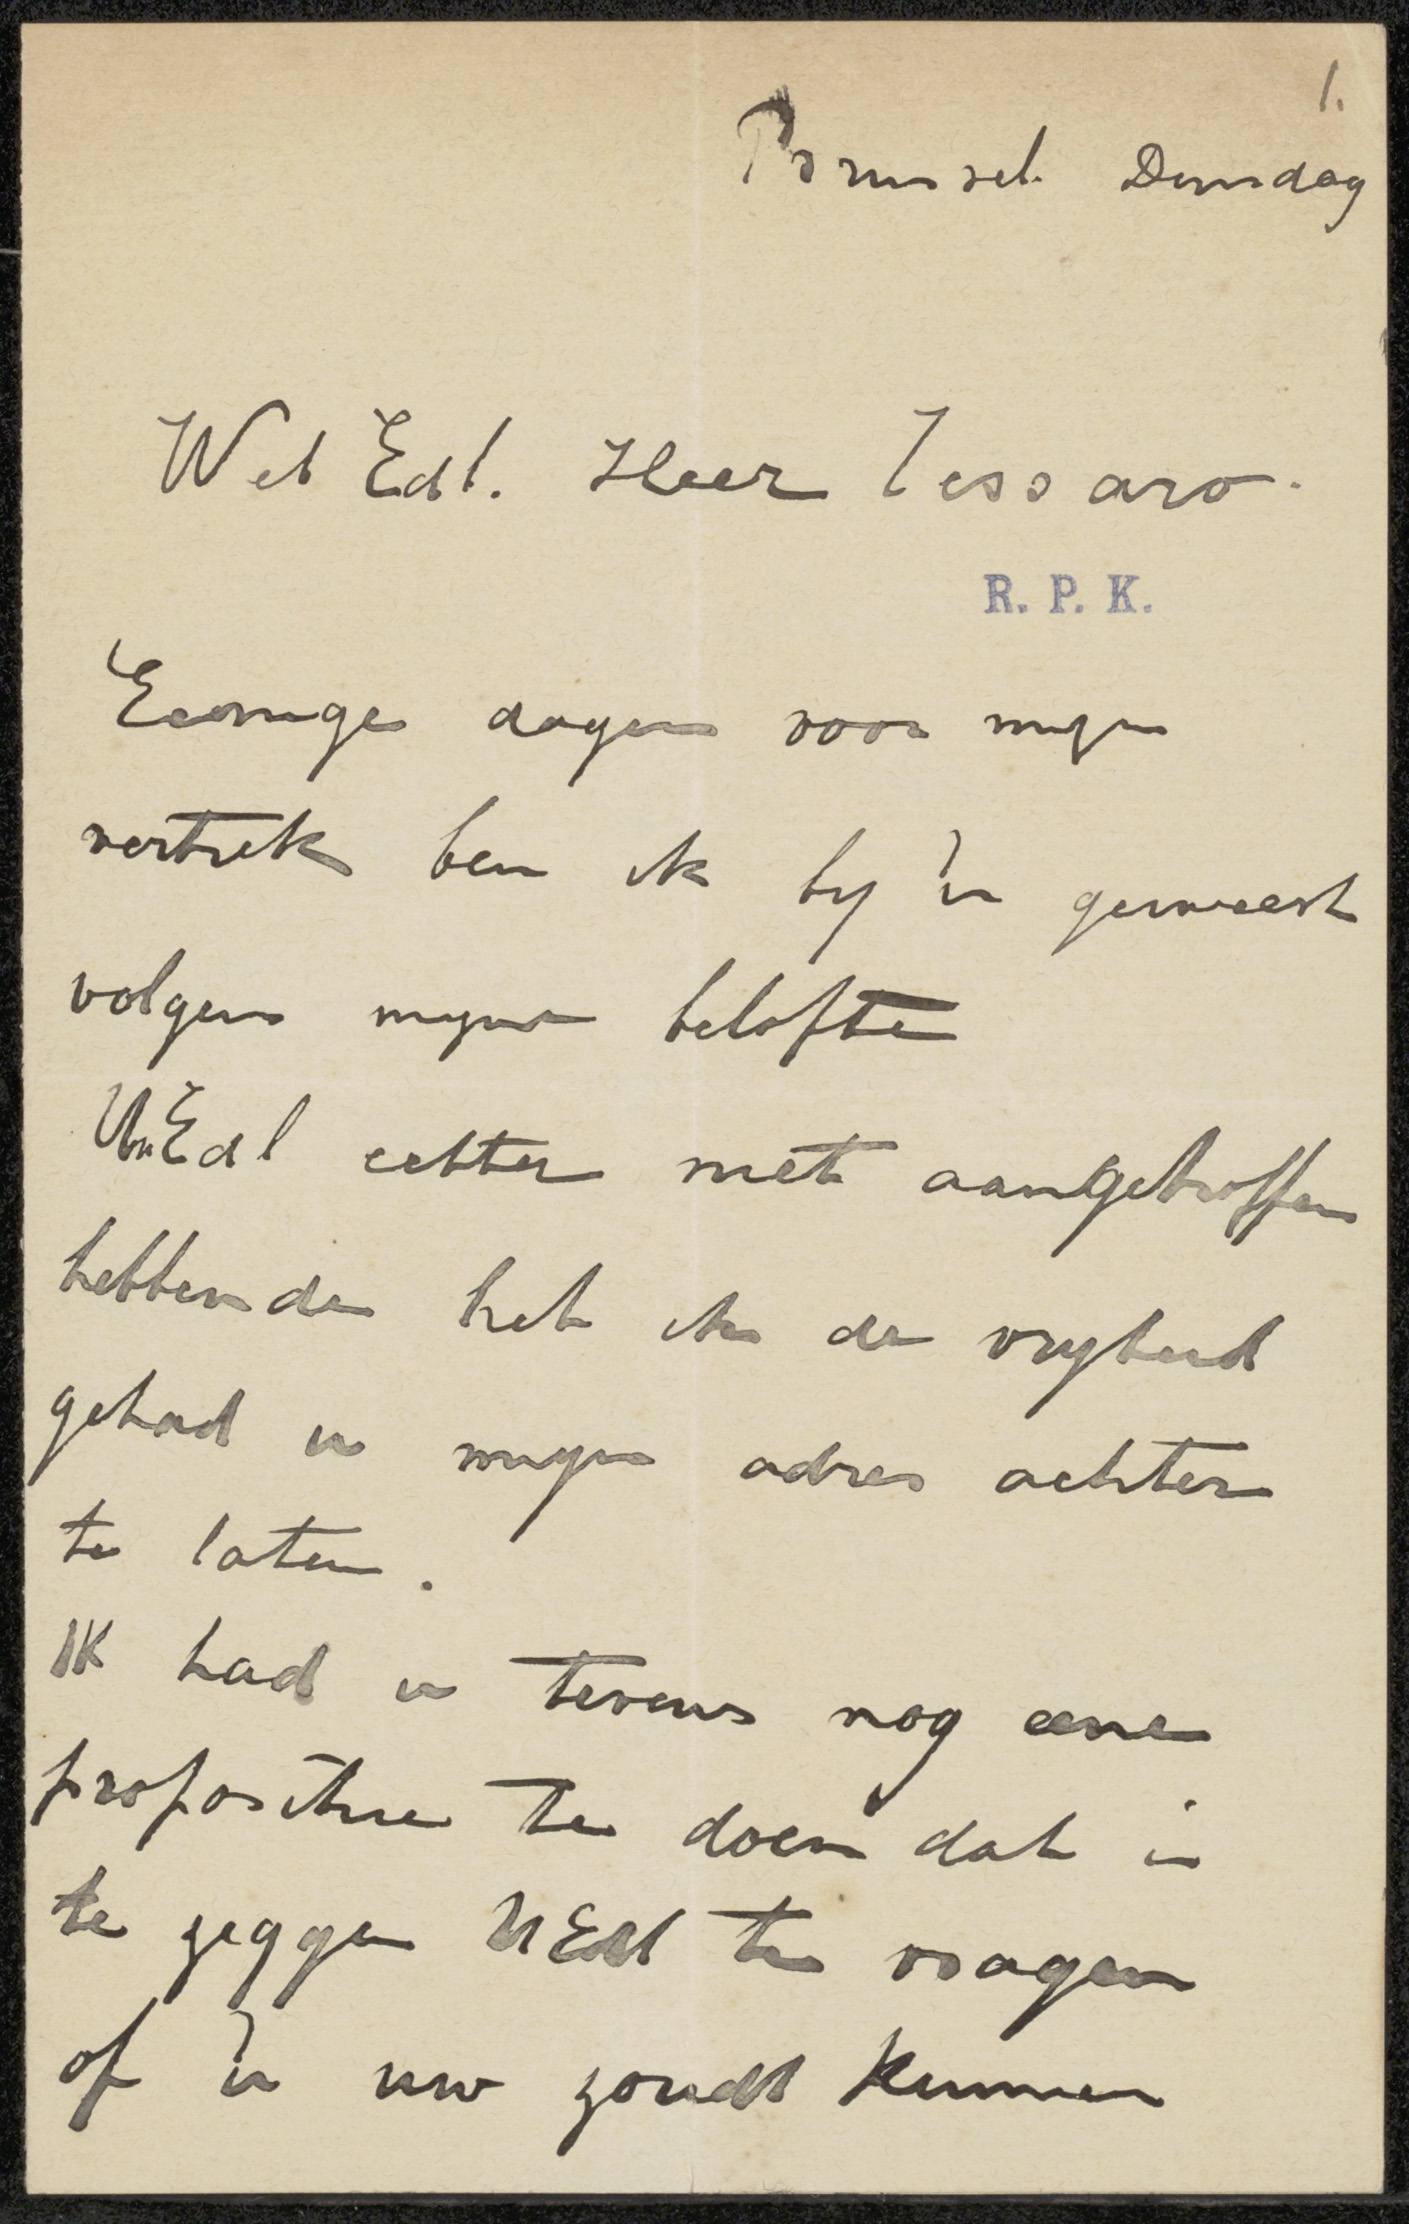 1.
Brussel. Dinsdag
Wel Edl. Heer Tessaro.
R. P. K.
Eenige dagen voor mijn
vertrek ben ik bij u geweest
volgens mijne belofte
UwEdl echter niet aangetroffen
hebbende heb ik de vrijheid
gehad u mijn adres achter
te laten.
Ik had u tevens nog eene
propositie te doen dat is
te zeggen UEdl te vragen
of u uw zoudt kunnen